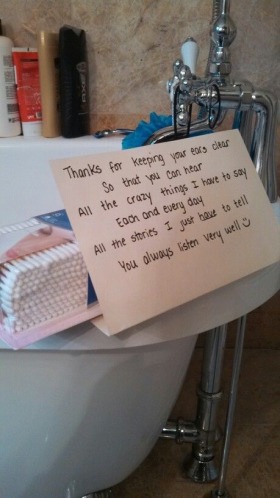 AXE
Thanks for keeping your ears clear
So that you can hear
All the crazy things I have to say
Each and every day
All the stories I just have to tell
You always listen very well